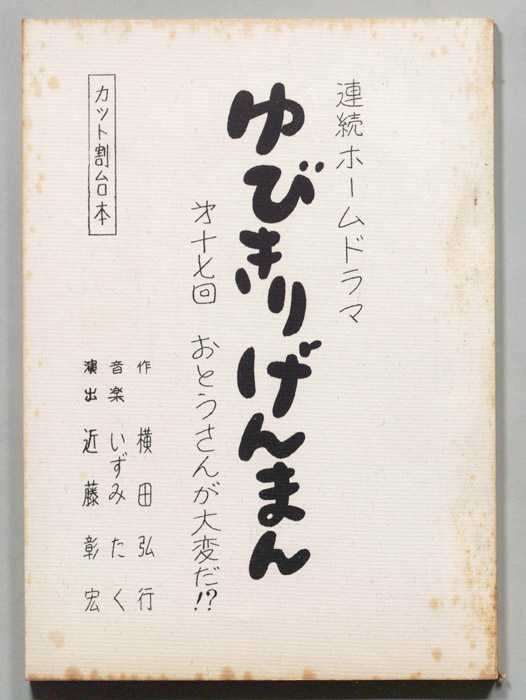 連続ホームドラマ
ゆびきりげんまん
第十七回 おとうさんが大変だ!?
カット割台本
作 横田弘行
音楽 いずみたく
演出 近藤彰宏